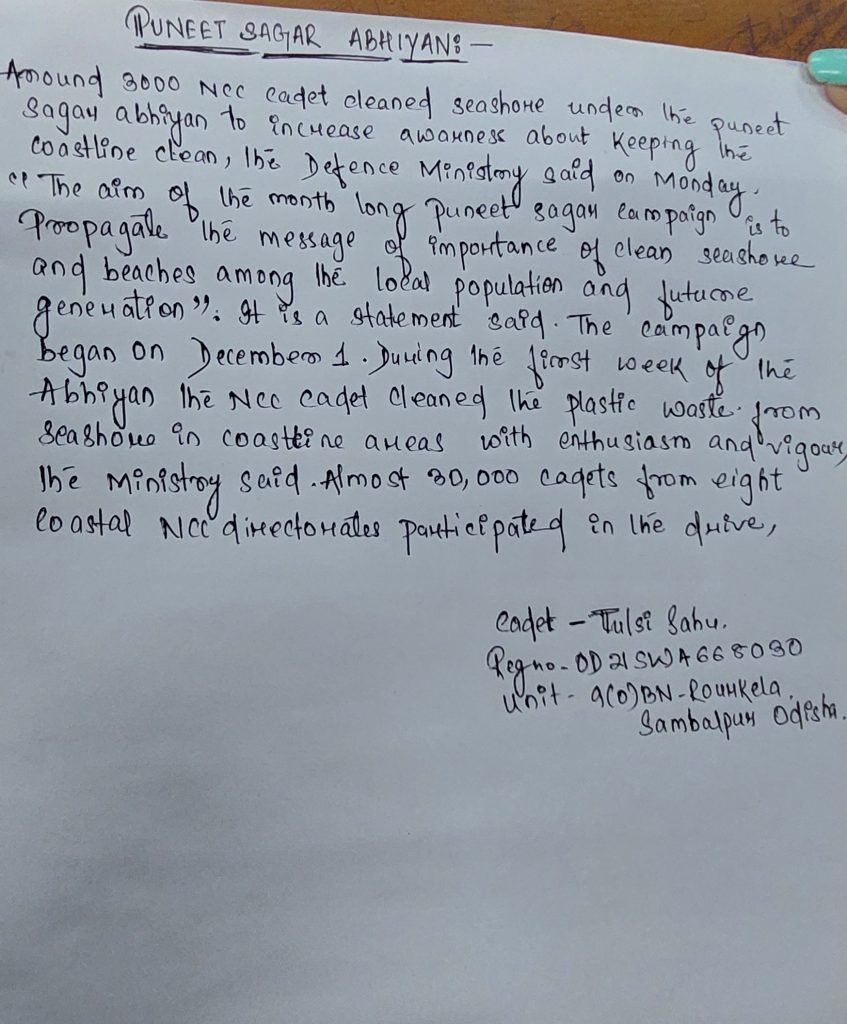 PUNEET SAGAR ABHIYAN:-
Around 3000 NCC cadet cleaned seashore under the puneet
sagar abhiyan to increase awarness about keeping the
coastline clean, the Defence Ministry said on Monday.
"The aim of the month long puneet sagar campaign is to
Propagate the message of importance of clean seashore
and beaches among the local population and future
generation". It is a statement said. The campaign
began on December 1. During the first week of the
Abhiyan the NCC cadet cleaned the plastic waste from
seashore in coastline areas with enthusiasm and vigour,
the Ministry said. Almost 30,000 cadets from eight
coastal NCC directorates participated in the drive,
cadet - Tulsi Sahu.
Reg no - OD21SWA668030
Unit - 9(O)BN - Rourkela,
Sambalpur Odisha.